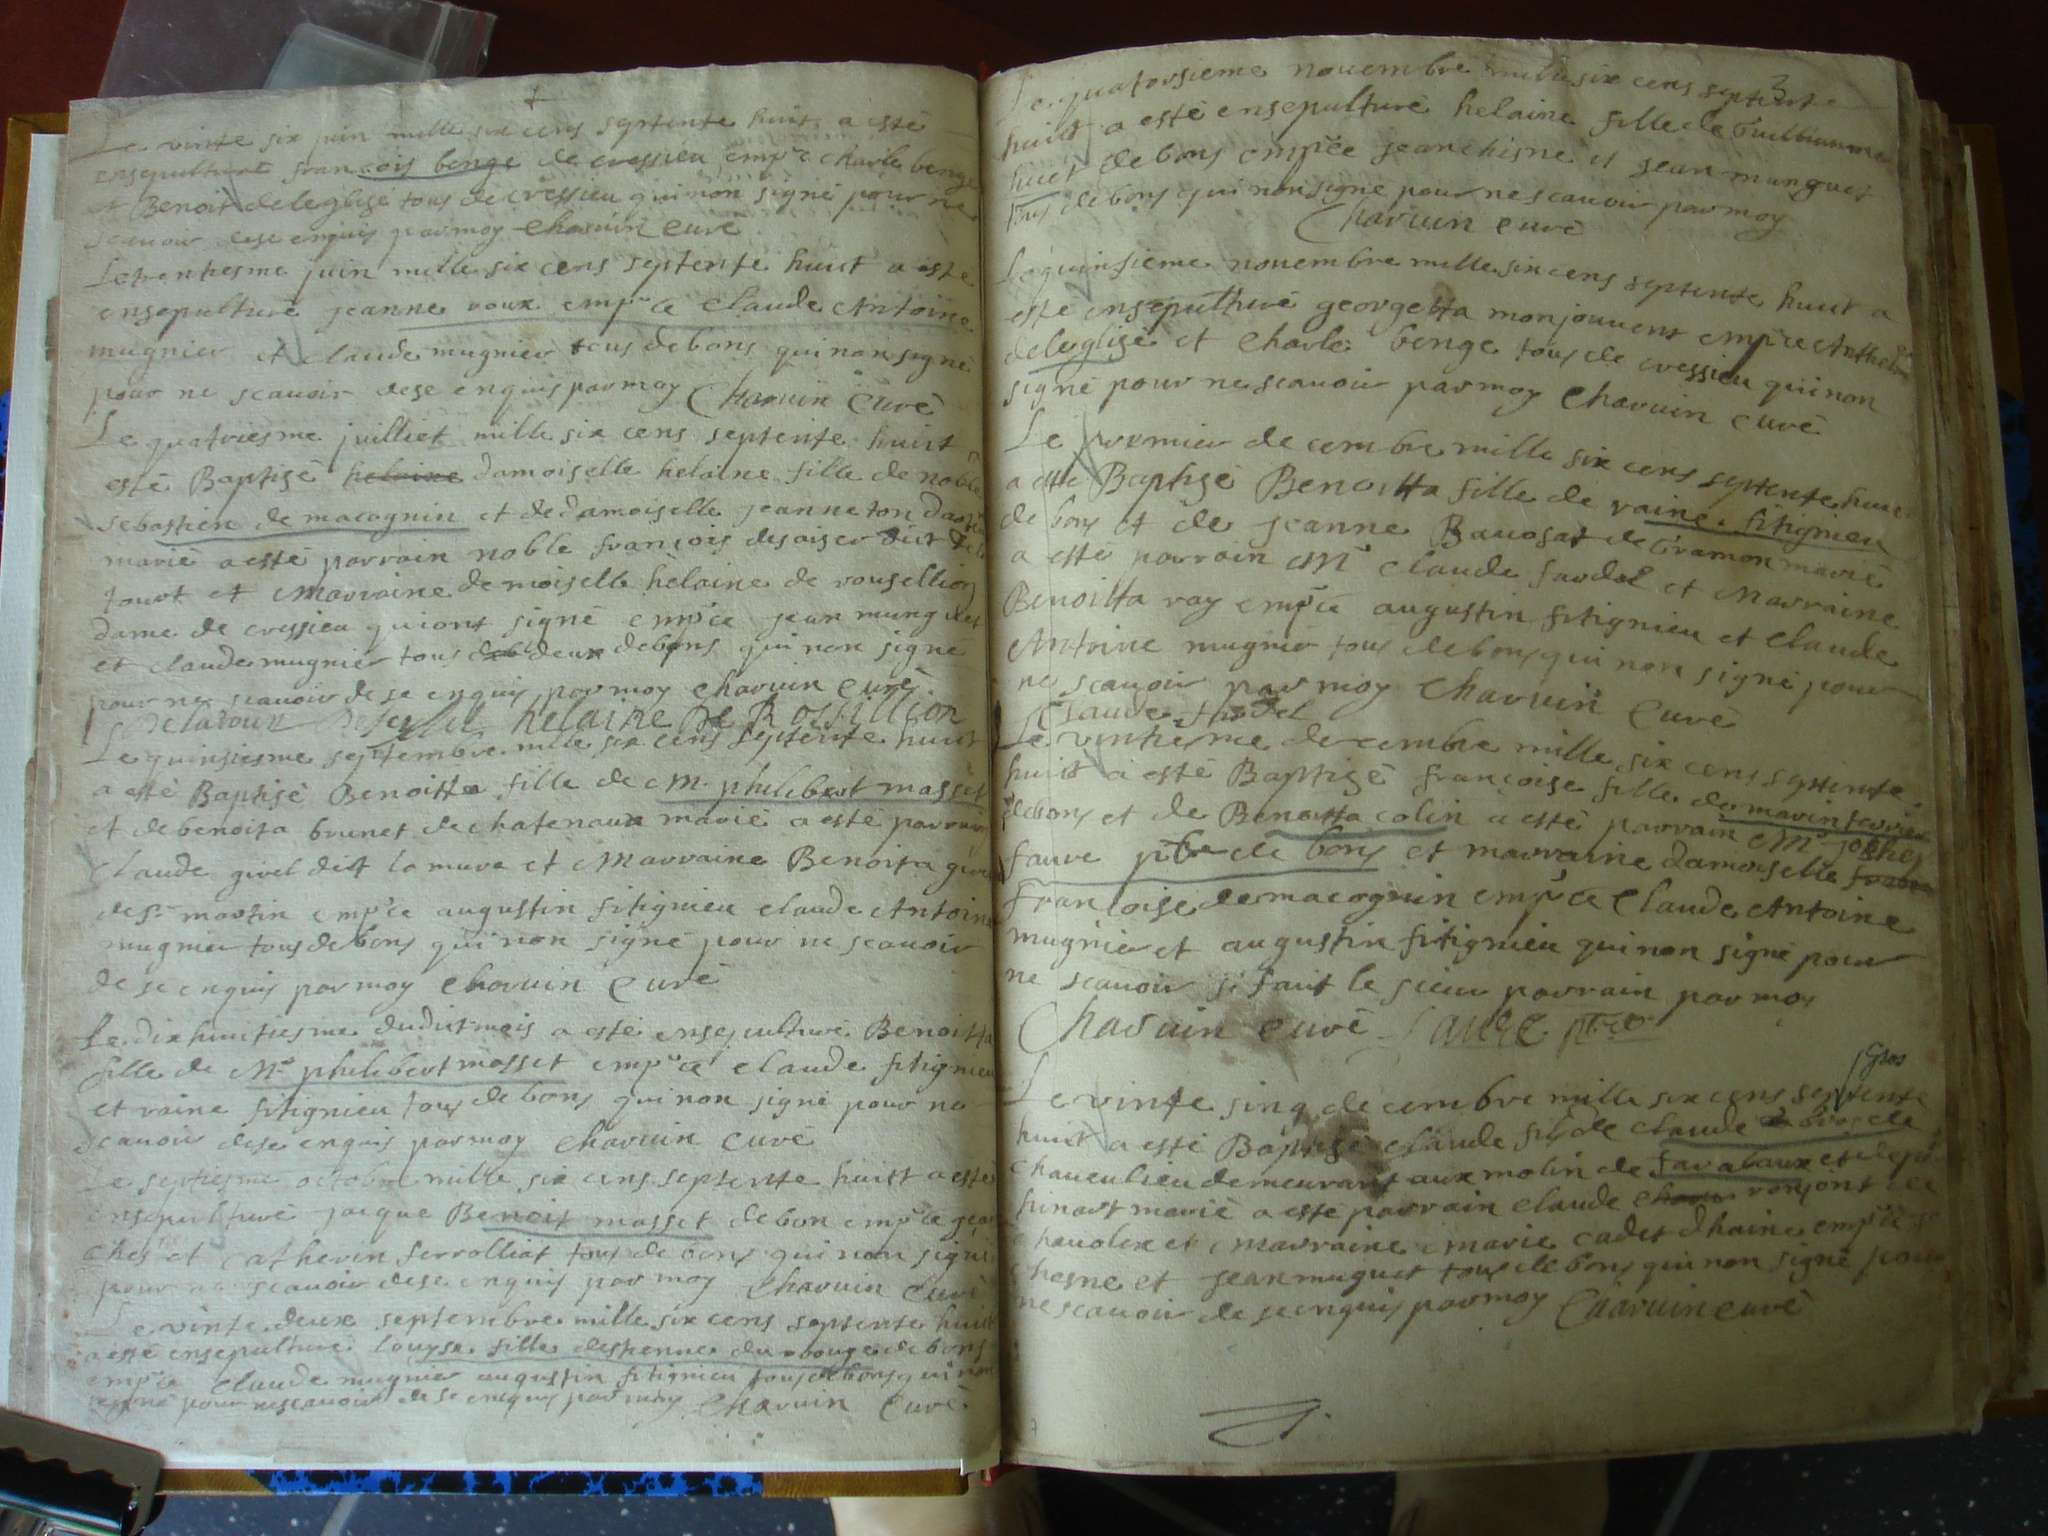 Le vinte six juin mille six cens septente huit a esté
ensepulturé francois benge de cressieu empnce charle benge
et Benoit deleglise tous de cressieu qui non signé pour ne
scavoir de se enquis par moy Charvin curé
Le trentiesme juin mille six cens septente huist a esté
ensepulturé jeanne roux empnce Claude Antoine
mugnier et claude mugnier tous de bons qui non signé
pour ne scavoir de se enquis par moy Charvin Curé
Le quatriesme juilliet mille six cens septente huist
esté Baptisé helaine damoiselle helaine fille de noble
sebastien de macognin et de damoiselle jeanne ton
marié a esté parrain noble françois desaiser dict de la
tourt et Marraine demoiselle helaine de rousellion
dame de cressieu qui ont signé empnce jean munguet
et claude mugnier tous deux de bons qui non signé
pour ne scavoir de se enquis par moy Charvin Curé
Delatour helaine De Rossillion
Le quinsiesme septembre mille six cens septente huist
a esté Baptisé Benoitta fille de Mr. philibert masset
et de benoita brunet de chatenaux marié a esté parrain
Claude givel dist la mure et Marraine Benoita
de st martin empnce augustin fitignieu claude Antoine
mugnier tous de bons qui non signé pour ne scavoir
de se enquis par moy Charvin Curé
Le dixhuitiesme dudit mois a esté ensepulturé Benoitta
fille de Mr philibert masset empnce claude fitignieu
et raine fitignieu tous de bons qui non signé pour ne
scavoir de se enquis par moy Charvin Curé
Le septiesme octobre mille six cens septente huist a esté
ensepulturé jaque Benoit masset de bon empnce jean
et Catherin ferrolliat tous de bons qui non signé
pour ne scavoir de se enquis par moy Charvin Curé
Le vinte deux septembre mille six cens septente huist
a esté ensepulturé Louyse fille destienne du rouge de bons
empnce Claude mugnier augustin fitignieu tous de bons qui non
signé pour ne scavoir de se enquis par moy Charvin Curé
3
Le quatorsieme novembre mille six cens septente
huist a esté ensepulturé helaine fille de Guillianme
huet de bons empnce jean chisne et jean munguet
tous de bons qui non signé pour ne scavoir par moy
Charvin Curé
Le quinsieme novembre mille six cens septente huist a
esté ensepulturé georgetta monjouvent empnce Anthel
deleglise et Charle benge tous de cressieu qui non
signé pour ne scavoir par moy Charvin Curé
Le premier decembre mille six cens septente huit
a esté Baptisé Benoitta fille de raine fitignieu
de bons et de jeanne Bavosat de Cramon marié
a esté parrain Mr Claude fardel et Marraine
Benoitta ray empnce augustin fitignieu et Claude
Antoine mugnier tous de bons qui non signé pour
ne scavoir par moy Charvin Curé
Claude fardel
Le vintiesme decembre mille six cens septente
huist a esté Baptisé françoise fille de marin terrier
de bons et de Benoitta colin a esté parrain Mr
faure pbre de bons et marraine damoiselle
francoise de macognin empnce Claude Antoine
mugnier et augustin fitignieu qui non signé pour
ne scavoir si faut le sieur parrain par moy
Charvin curé faure pbre
Gros
Le vinte sinq decembre mille six cens septente
huist a esté Baptisé Claude fils de claude gros de
chaveulieu demeurant aux molin de favabaux et de
marié a esté parrain claude ronjont de
et Marraine marie cadet dhaine empnce
chesne et jean muguet tous de bons qui non signé pour
ne scavoir de se enquis par moy Charvin curé